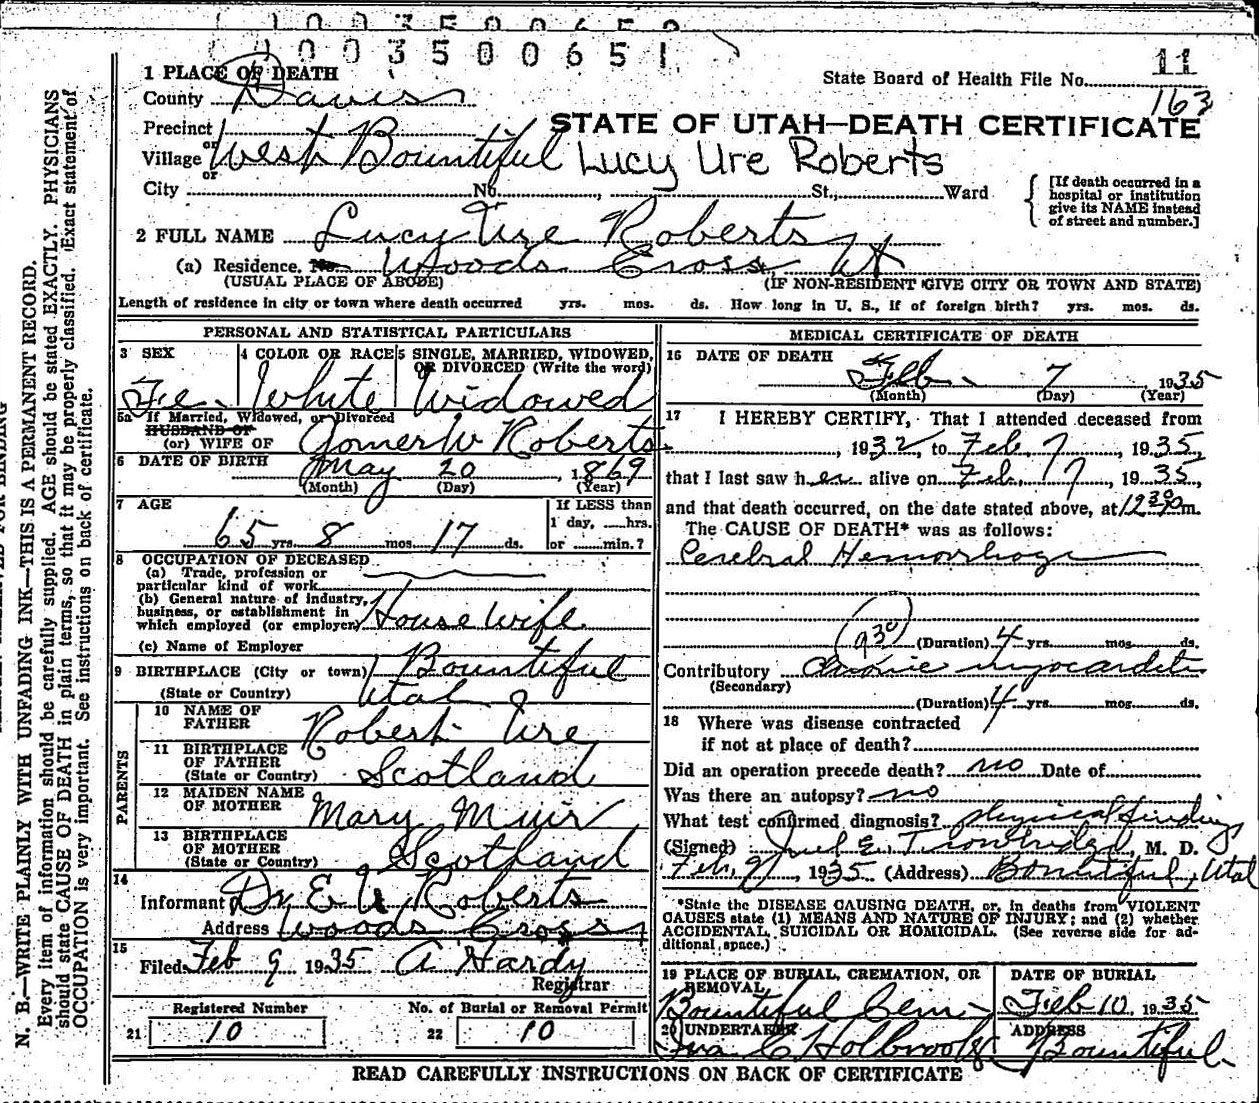 1003500651
11
State Board of Health File No.
163
1 PLACE OF DEATH
County Davis
Precinct
or
Village West Bountiful
or
STATE OF UTAH—DEATH CERTIFICATE
Lucy Ure Roberts
City No. , St., Ward
[If death occurred in a
hospital or institution
give its NAME instead
of street and number.]
2 FULL NAME Lucy Ure Roberts
(a) Residence. No. Woods Cross, Ut
(USUAL PLACE OF ABODE) (IF NON-RESIDENT GIVE CITY OR TOWN AND STATE)
Length of residence in city or town where death occurred yrs. mos. ds. How long in U. S., if of foreign birth? yrs. mos. ds.
PERSONAL AND STATISTICAL PARTICULARS
3 SEX 4 COLOR OR RACE 5 SINGLE, MARRIED, WIDOWED,
OR DIVORCED (Write the word)
Fe. White Widowed
5a If Married, Widowed, or Divorced
HUSBAND OF
(or) WIFE OF Gomer W Roberts
6 DATE OF BIRTH May 20 1869
(Month) (Day) (Year)
7 AGE If LESS than
1 day, hrs.
65 yrs. 8 mos. 17 ds. or min.?
8 OCCUPATION OF DECEASED
(a) Trade, profession or
particular kind of work
(b) General nature of industry,
business, or establishment in
which employed (or employer) House wife
(c) Name of Employer
9 BIRTHPLACE (City or town) Bountiful
(State or Country) Utah
PARENTS
10 NAME OF
FATHER Robert Ure
11 BIRTHPLACE
OF FATHER
(State or Country) Scotland
12 MAIDEN NAME
OF MOTHER Mary Muir
13 BIRTHPLACE
OF MOTHER
(State or Country) Scotland
14
Informant Dr. E U Roberts
Address Woods Cross
15
Filed Feb 9 1935 A Hardy
Registrar
Registered Number No. of Burial or Removal Permit
21 10 22 10
MEDICAL CERTIFICATE OF DEATH
16 DATE OF DEATH
Feb. 7 1935
(Month) (Day) (Year)
17 I HEREBY CERTIFY, That I attended deceased from
, 1932, to Feb. 7, 1935,
that I last saw her alive on Feb. 7, 1935,
and that death occurred, on the date stated above, at 12 30 m.
The CAUSE OF DEATH* was as follows:
Cerebral Hemorrhage
930 (Duration) 4 yrs. mos. ds.
Contributory Chronic myocarditis
(Secondary)
(Duration) 4 yrs. mos. ds.
18 Where was disease contracted
if not at place of death?
Did an operation precede death? no Date of
Was there an autopsy? no
What test confirmed diagnosis? physical findings
(Signed) E. Trowbridge, M. D.
Feb. 9, 1935 (Address) Bountiful, Utah
*State the DISEASE CAUSING DEATH, or, in deaths from VIOLENT
CAUSES state (1) MEANS AND NATURE OF INJURY; and (2) whether
ACCIDENTAL, SUICIDAL OR HOMICIDAL. (See reverse side for ad-
ditional space.)
19 PLACE OF BURIAL, CREMATION, OR
REMOVAL
Bountiful Cem.
DATE OF BURIAL
Feb 10, 1935
20 UNDERTAKER
Iva C Holbrook
ADDRESS
Bountiful
READ CAREFULLY INSTRUCTIONS ON BACK OF CERTIFICATE
N. B.—WRITE PLAINLY WITH UNFADING INK—THIS IS A PERMANENT RECORD.
Every item of information should be carefully supplied. AGE should be stated EXACTLY. PHYSICIANS
should state CAUSE OF DEATH in plain terms, so that it may be properly classified. Exact statement of
OCCUPATION is very important. See instructions on back of certificate.